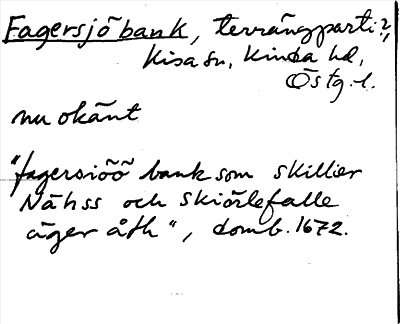 Fagersjöbank, terrängparti?,
Kisa sn, Kinda hd,
Östg. l.
nu okänt
"fagersiöö bank som skillier
Nähss och skiörlefalle
äger åth", domb. 1672.